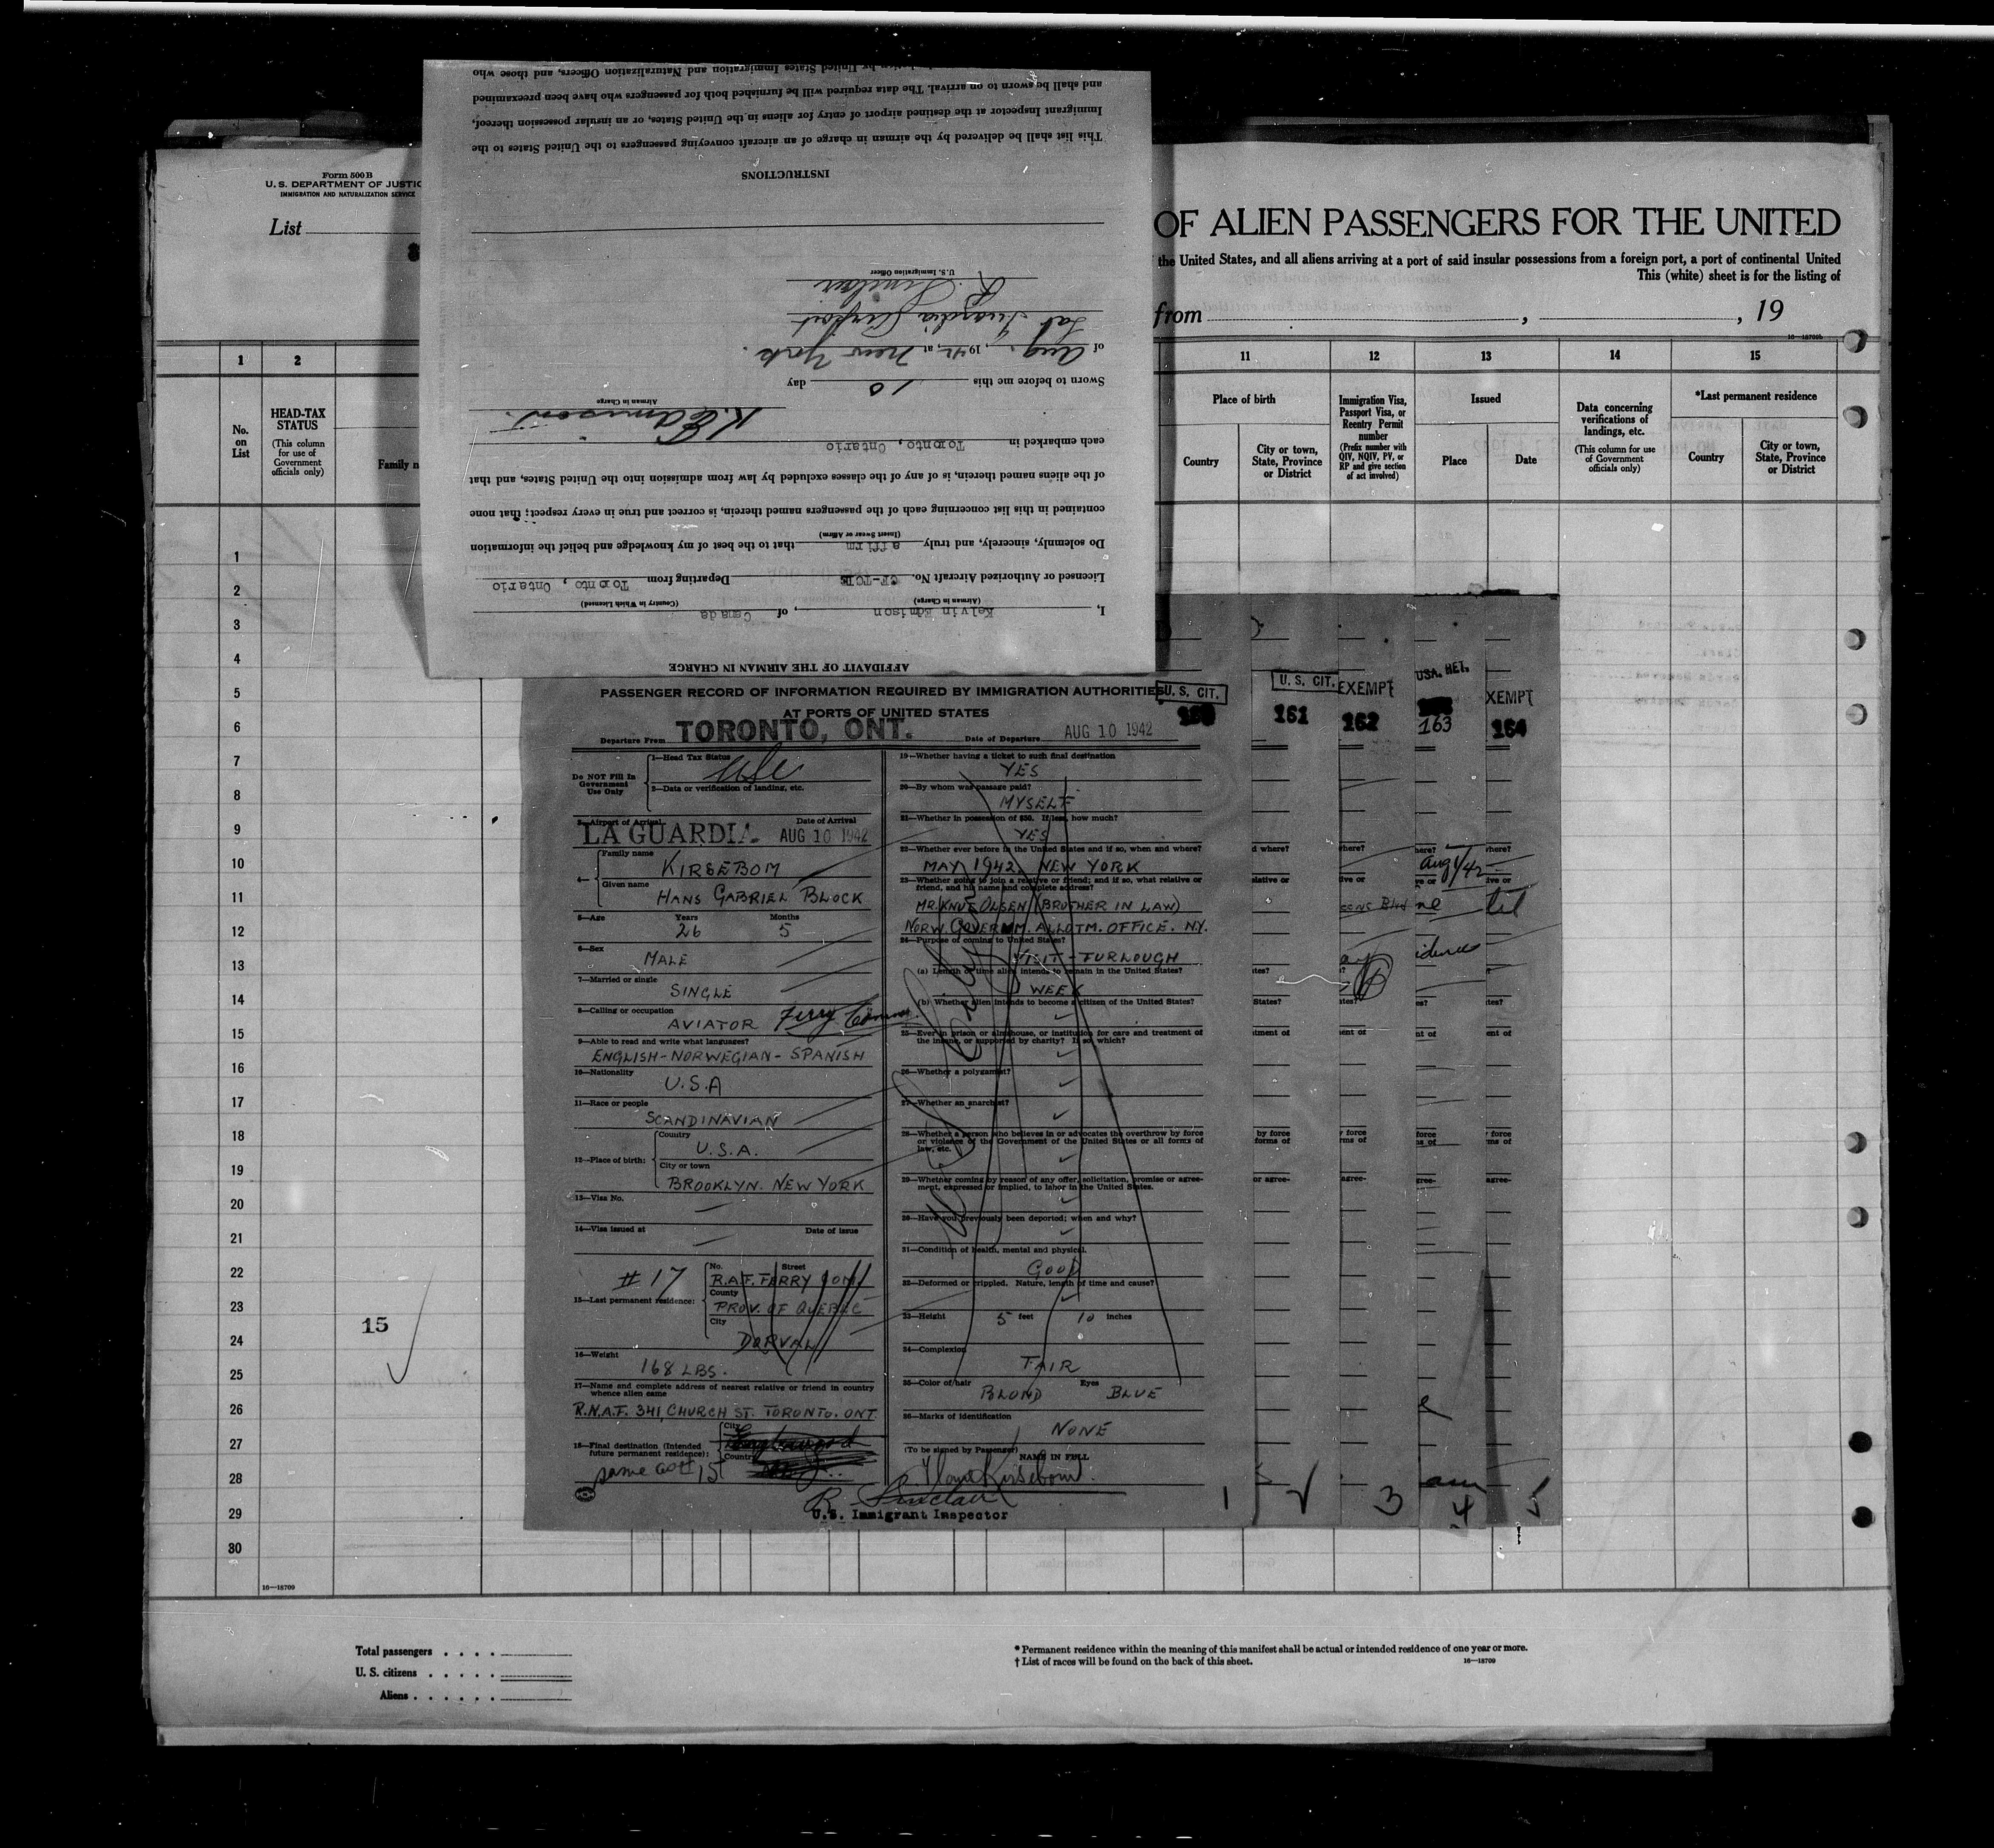 Form 500B
U. S. DEPARTMENT OF JUSTIC
IMMIGRATION AND NATURALIZATION SERVICE
List
OF ALIEN PASSENGERS FOR THE UNITED
the United States, and all aliens arriving at a port of said insular possessions from a foreign port, a port of continental United
This (white) sheet is for the listing of
from , , 19
16—18709b
1 2 11 12 13 14 15
No. on List
HEAD-TAX STATUS
(This column for use of Government officials only)
Family n
Place of birth
Country
City or town, State, Province or District
Immigration Visa, Passport Visa, or Reentry Permit number
(Prefix number with QIV, NQIV, PV, or RP and give section of act involved)
Issued
Place
Date
Data concerning verifications of landings, etc.
(This column for use of Government officials only)
*Last permanent residence
Country
City or town, State, Province or District
1
2
3
4
5
6
7
8
9
10
11
12
13
14
15
16
17
18
19
20
21
22
23
24
25
26
27
28
29
30
15
16—18709
Total passengers . . . .
U. S. citizens . . . . .
Aliens . . . . . .
* Permanent residence within the meaning of this manifest shall be actual or intended residence of one year or more.
† List of races will be found on the back of this sheet.
16—18709
AFFIDAVIT OF THE AIRMAN IN CHARGE
I, Kelvin Edmison, of Canada
(Airman in Charge) (Country in Which Licensed)
Licensed or Authorized Aircraft No. Departing from Toronto, Ontario
Do solemnly, sincerely, and truly affirm that to the best of my knowledge and belief the information
(Insert Swear or Affirm)
contained in this list concerning each of the passengers named therein, is correct and true in every respect; that none
of the aliens named therein, is of any of the classes excluded by law from admission into the United States, and that
each embarked in Toronto, Ontario
K. Edmison.
Airman in Charge
Sworn to before me this 10 day
of Aug., 1942, at New York.
La Guardia Airport
R. Sinclair
U.S. Immigration Officer
INSTRUCTIONS
This list shall be delivered by the airman in charge of an aircraft conveying passengers to the United States to the
Immigrant Inspector at the destined airport of entry for aliens in the United States, or an insular possession thereof,
and shall be sworn to on arrival. The data required will be furnished both for passengers who have been preexamined
by United States Immigration and Naturalization Officers, and those who
PASSENGER RECORD OF INFORMATION REQUIRED BY IMMIGRATION AUTHORITIES
AT PORTS OF UNITED STATES
Departure From TORONTO, ONT. Date of Departure AUG 10 1942
Do NOT Fill In Government Use Only
1—Head Tax Status
USC
2—Data or verification of landing, etc.
3—Airport of Arrival Date of Arrival
LA GUARDIA AUG 10 1942
4— Family name
KIRSEBOM
Given name
HANS GABRIEL BLOCK
5—Age Years Months
26 5
6—Sex
MALE
7—Married or single
SINGLE
8—Calling or occupation
AVIATOR Ferry Comm.
9—Able to read and write what languages?
ENGLISH-NORWEGIAN-SPANISH
10—Nationality
U.S.A
11—Race or people
SCANDINAVIAN
12—Place of birth: Country
U.S.A.
City or town
BROOKLYN. NEW YORK
13—Visa No.
—
14—Visa issued at Date of issue
—
# 17
15—Last permanent residence:
No. Street
R.A.F. FERRY COM.
County
PROV. OF QUEBEC
City
DORVAL
16—Weight
168 LBS.
17—Name and complete address of nearest relative or friend in country whence alien came
R.N.A.F. 341, CHURCH ST. TORONTO. ONT.
18—Final destination (Intended future permanent residence):
City
Country
same as # 15
19—Whether having a ticket to such final destination
YES
20—By whom was passage paid?
MYSELF
21—Whether in possession of $50. If less, how much?
YES
22—Whether ever before in the United States and if so, when and where?
MAY 1942 NEW YORK
23—Whether going to join a relative or friend; and if so, what relative or friend, and his name and complete address?
MR. KNUT OLSEN (BROTHER IN LAW)
NORW. GOVERNM. ALLOTM. OFFICE. N.Y.
24—Purpose of coming to United States?
VISIT-FURLOUGH
(a) Length of time alien intends to remain in the United States?
WEEK
(b) Whether alien intends to become a citizen of the United States?
25—Ever in prison or almshouse, or institution for care and treatment of the insane, or supported by charity? If so, which?
26—Whether a polygamist?
27—Whether an anarchist?
28—Whether a person who believes in or advocates the overthrow by force or violence of the Government of the United States or all forms of law, etc.
29—Whether coming by reason of any offer, solicitation, promise or agreement, expressed or implied, to labor in the United States.
30—Have you previously been deported; when and why?
31—Condition of health, mental and physical.
GOOD
32—Deformed or crippled. Nature, length of time and cause?
33—Height 5 feet 10 inches
34—Complexion
FAIR
35—Color of hair Eyes
BLOND BLUE
36—Marks of identification
NONE
(To be signed by Passenger) NAME IN FULL
Hans Kirsebom
R. Sinclair
U.S. Immigrant Inspector
U. S. CIT.
U. S. CIT.
161
EXEMPT
162
USA. RET.
163
XEMPT
164
Aug 1/42
1 3 4 5